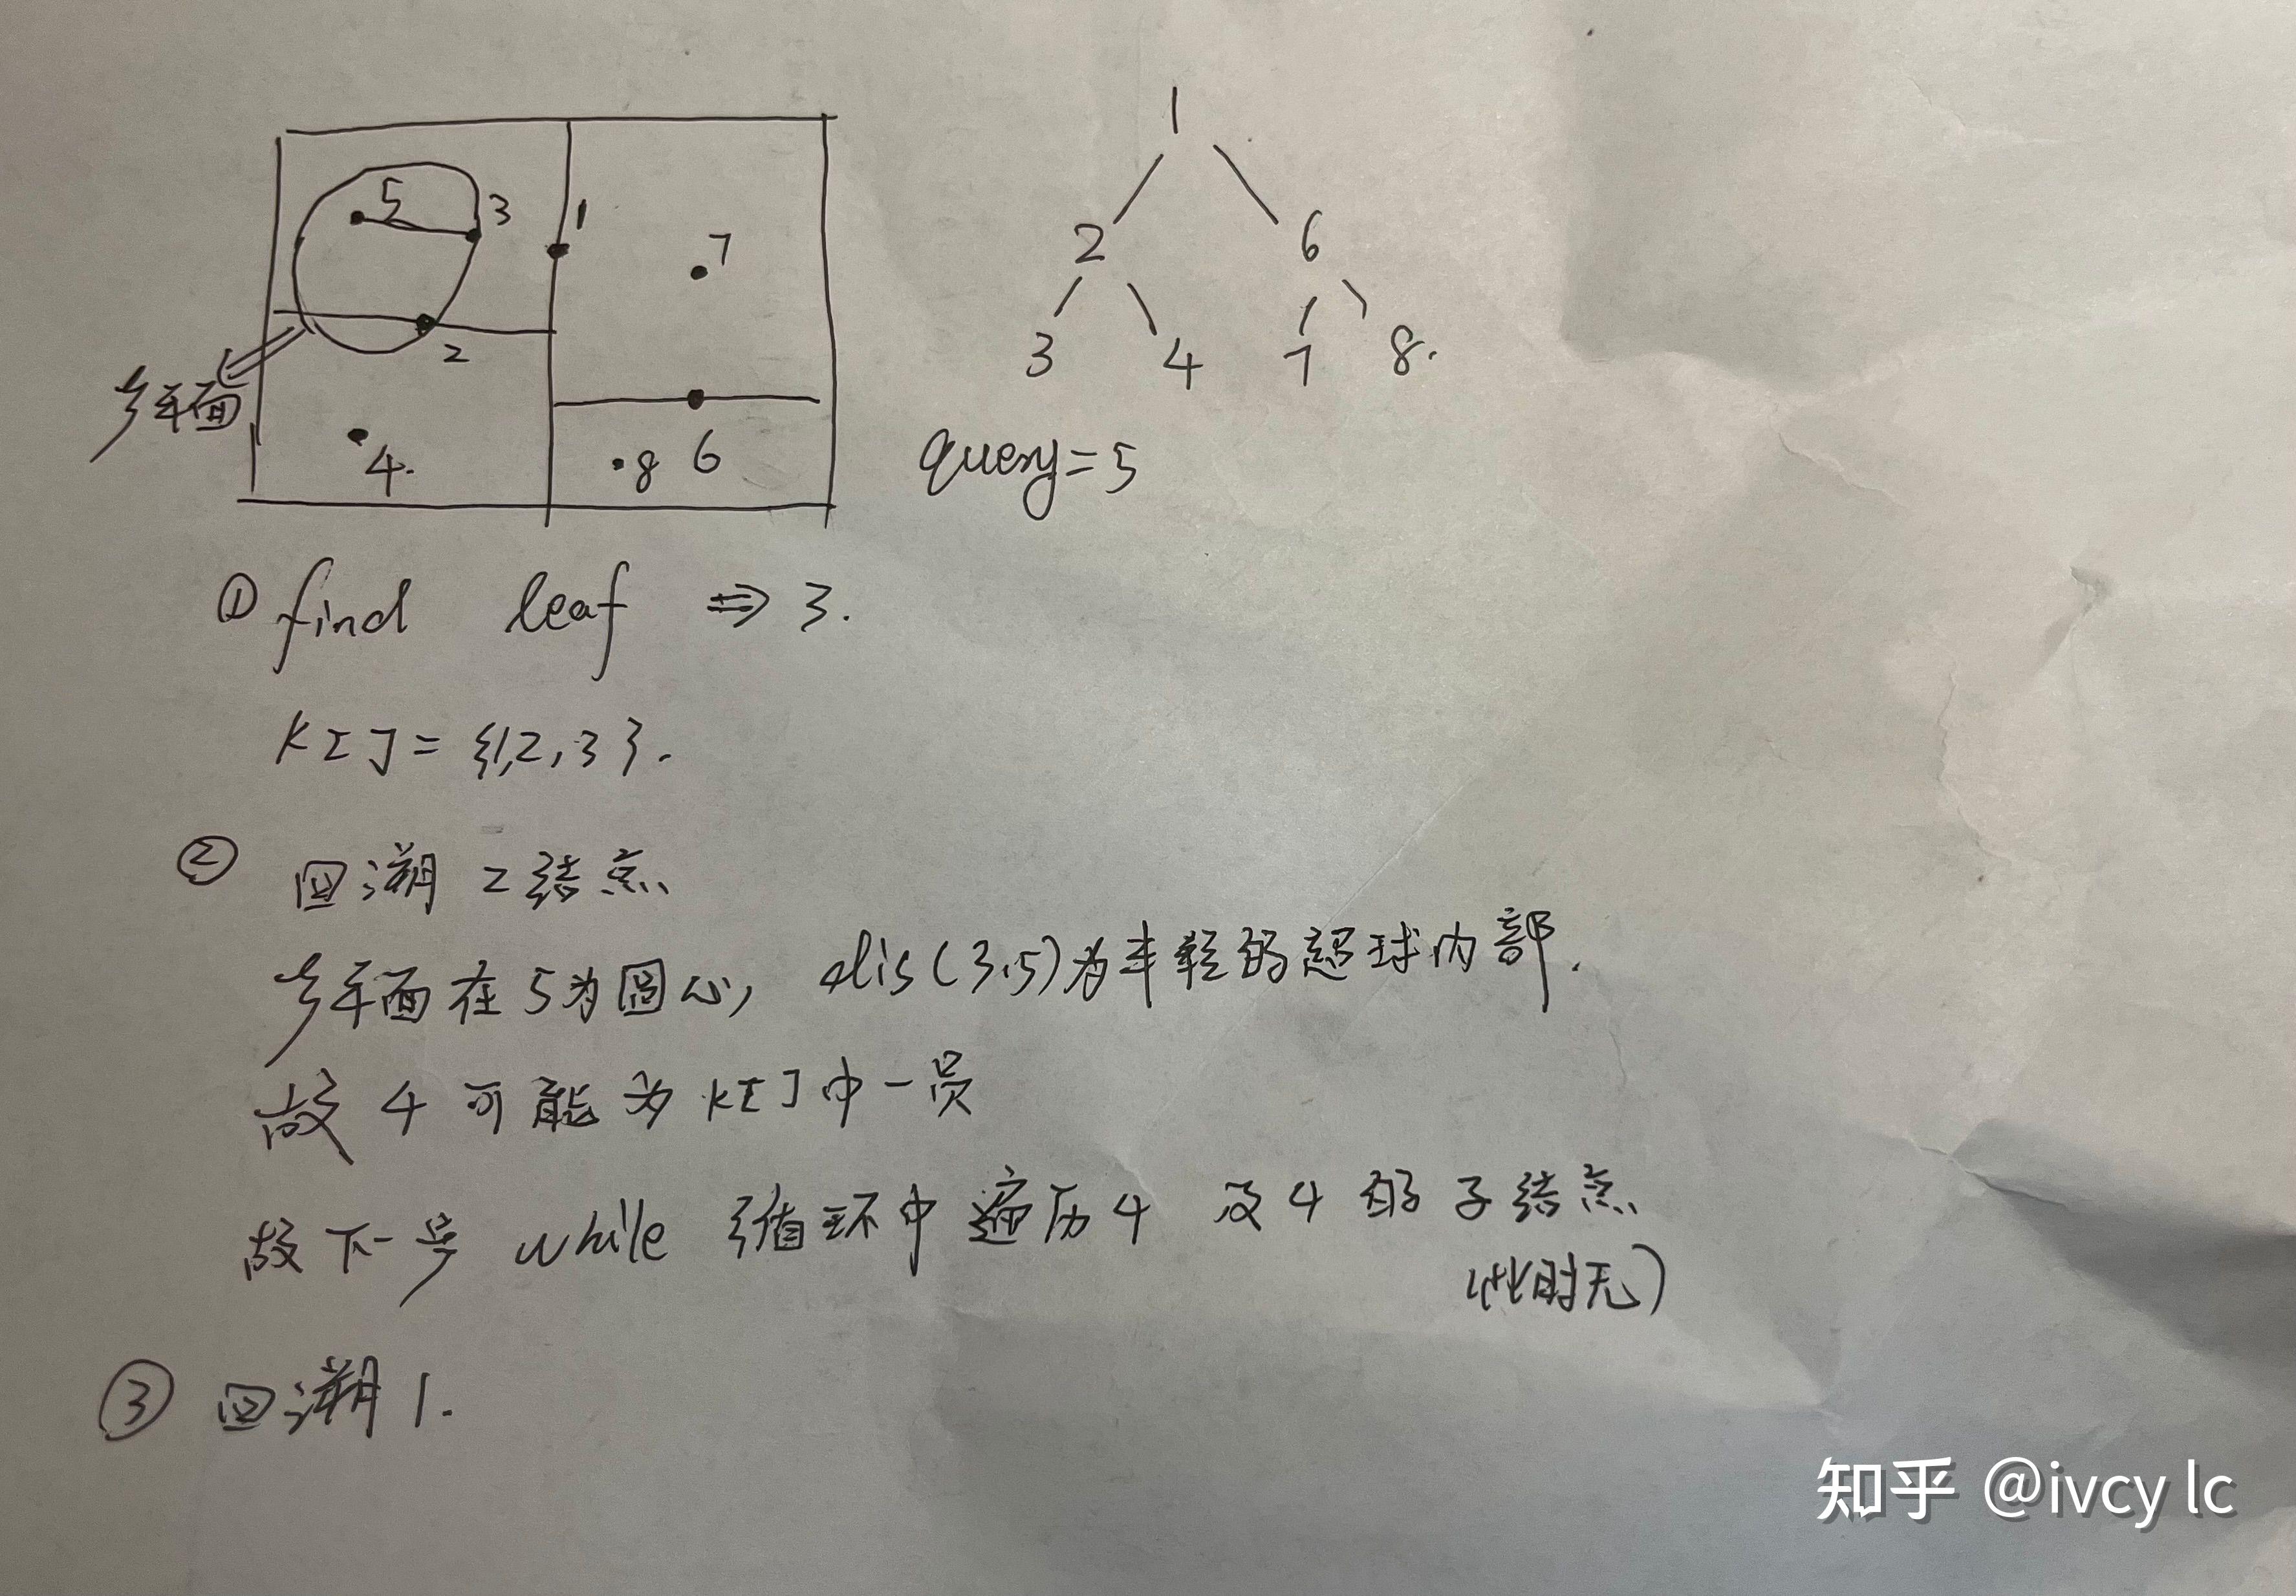 5
3
1
7
2
4.
8 6
多平面
1
2 6
3 4 7 8.
query=5
① find leaf ⇒ 3.
K[]={1,2,3}.
② 回溯2结点
多平面在5为圆心, dis(3,5)为半径的超球内部.
故4可能为K[]中一员
故下一步 while 循环中遍历4 及4的子结点
(此时无)
③ 回溯1.
知乎 @ivcy lc